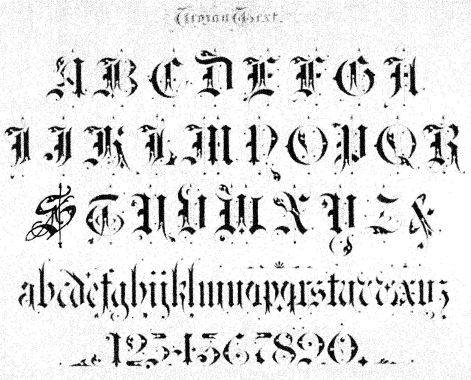 German Text.
A B C D E F G H
I J K L M N O P Q R
S T U V W X Y Z &
abcdefghijklmnopqrstuvwxyz
1234567890.